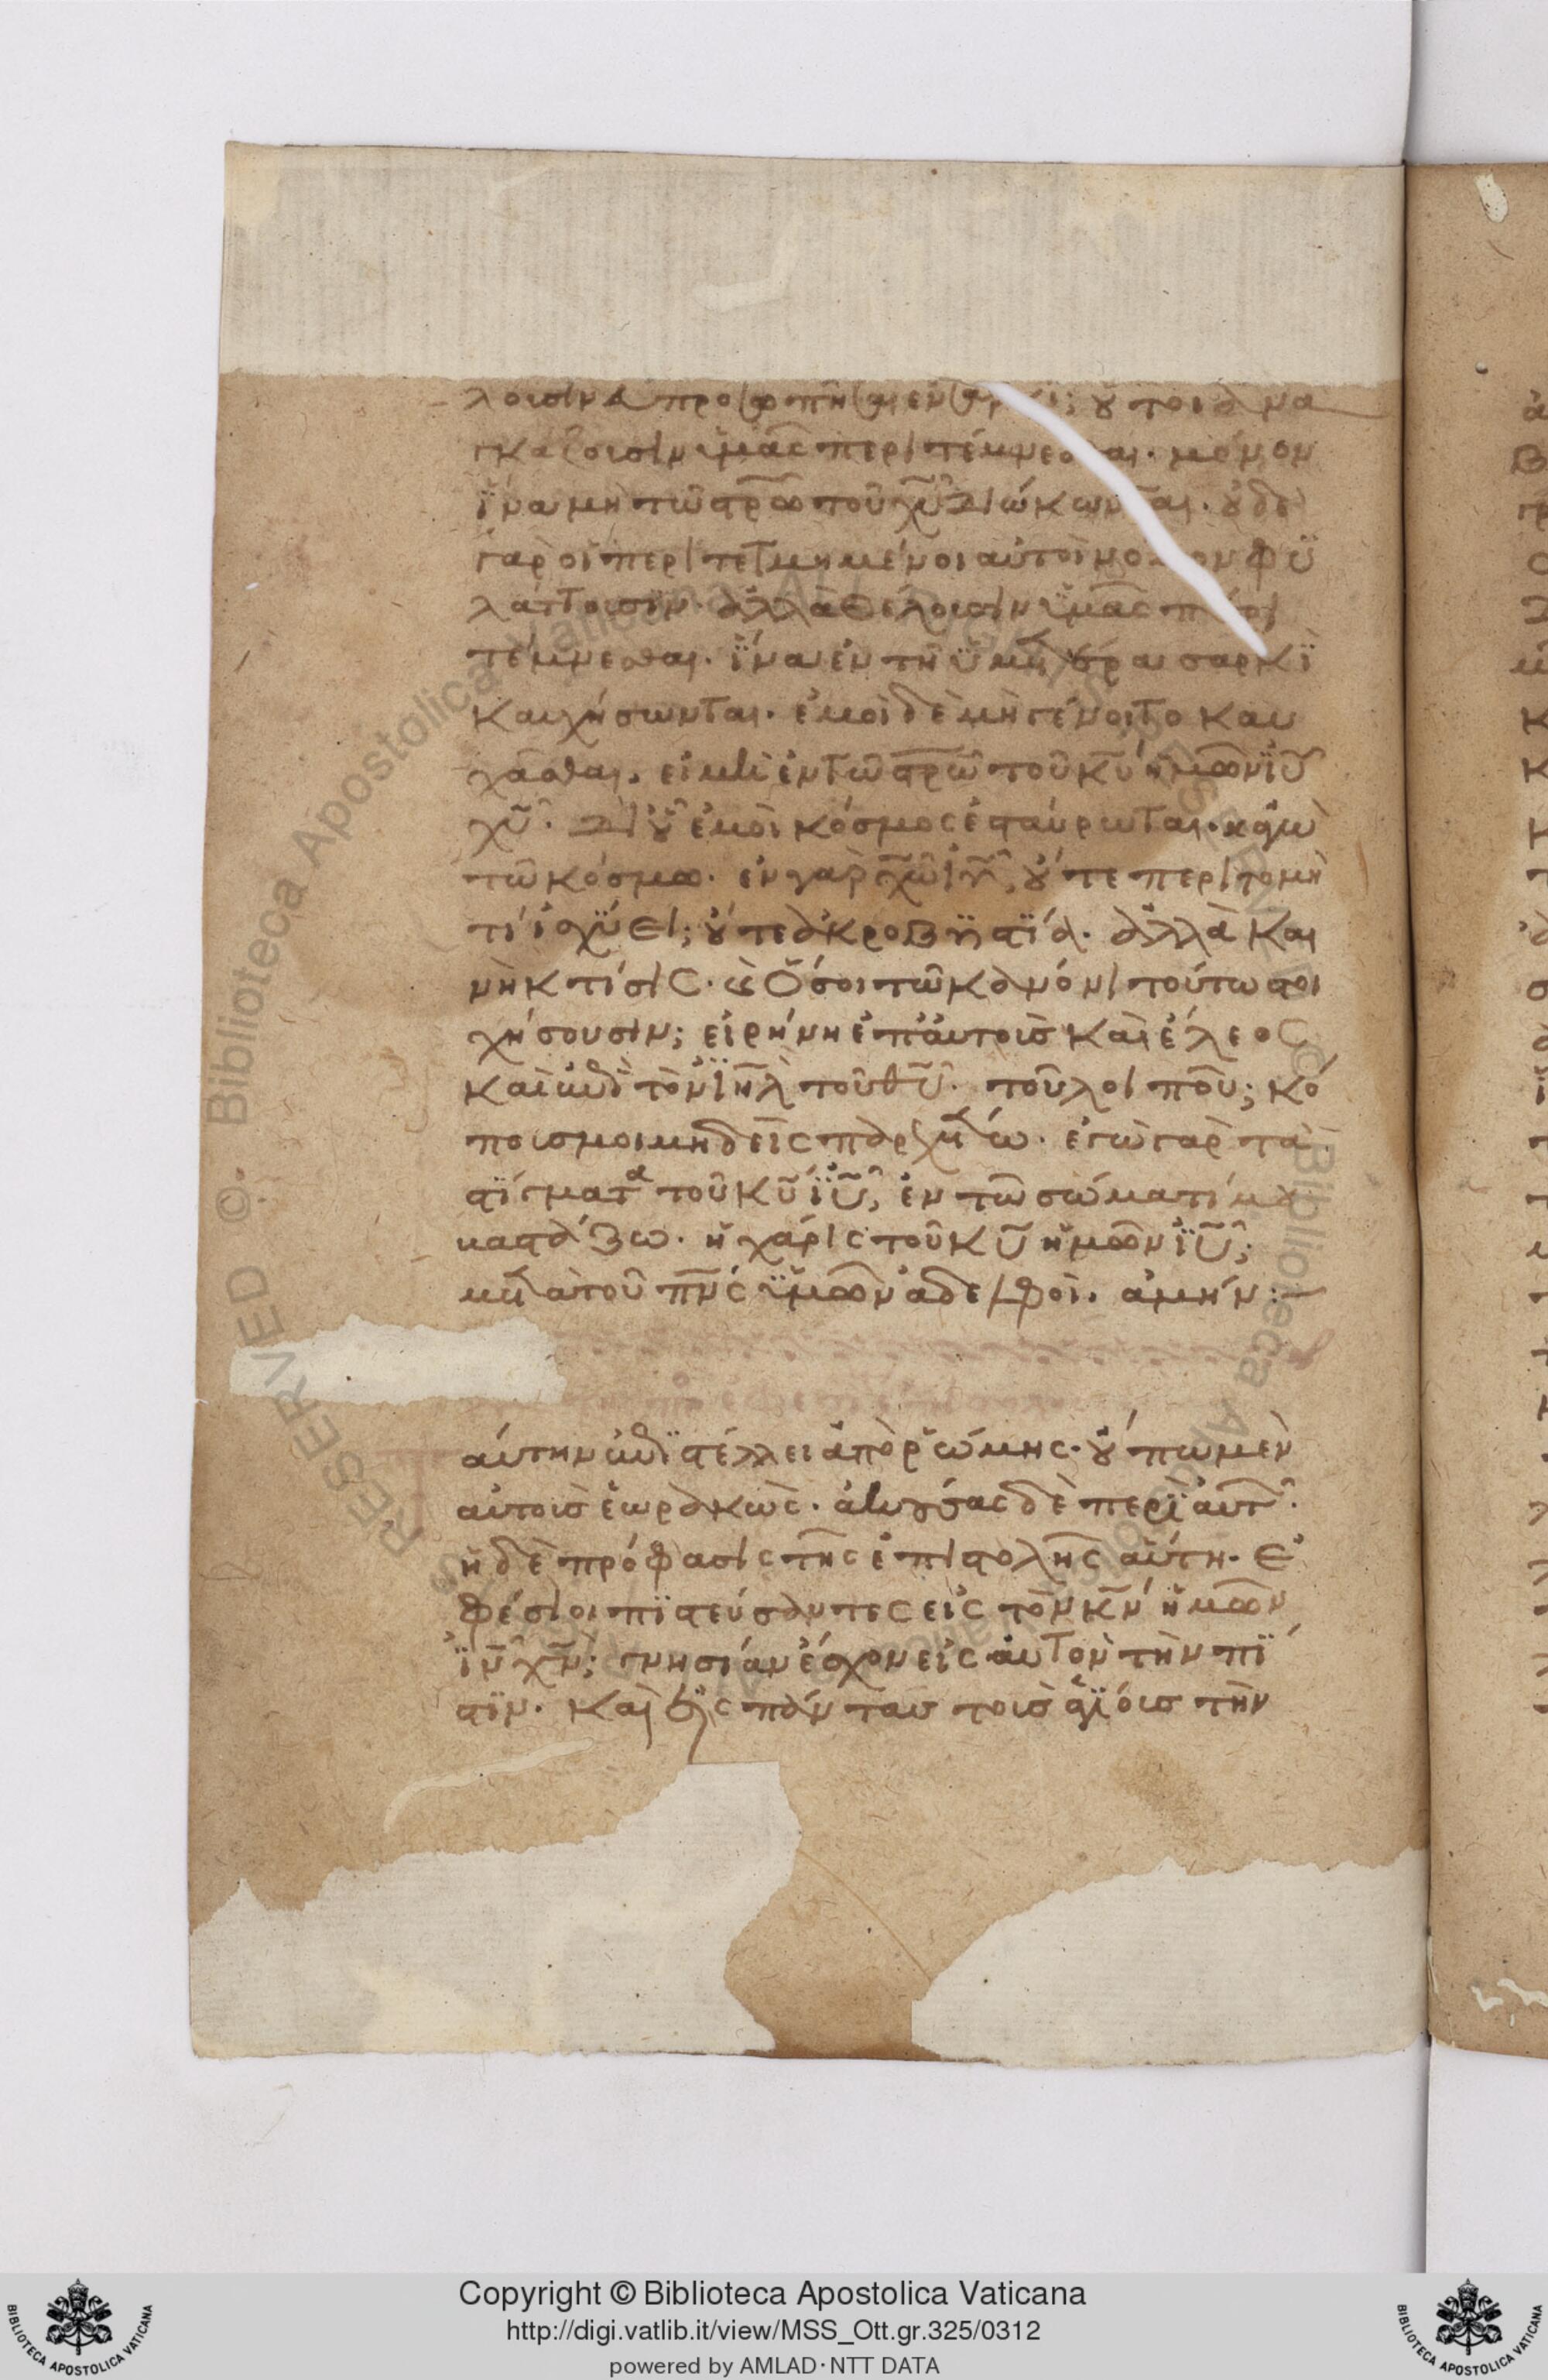 λουσιν ευπροσωπῆσαι ἐν σαρκί; οὗτοι ἀνα
γκάζουσιν ὑμᾶς περιτέμνεσθαι. μόνον
ἵνα μὴ τῶ στρω τοῦ χυ διώκωνται. οὐδὲ
γὰρ οἱ περιτετμημένοι αὐτοὶ νόμον φυ
λάττουσιν. ἀλλὰ θέλουσιν ὑμᾶς περι
τέμνεσθαι. ἵνα ἐν τῆ ὑμετέρα σαρκὶ
καυχήσωνται. ἐμοὶ δὲ μὴ γένοιτο καυ
χᾶσθαι. εἰ μὴ ἐν τῶ στρω τοῦ κυ ἡμῶν ιυ
χυ. δι' οὗ ἐμοὶ κόσμος ἐσταύρωται. κἀγὼ
τῶ κόσμω. ἐν γὰρ χω ιυ, οὔτε περιτομὴ
τί ἰσχύει; οὔτε ἀκροβυστία. ἀλλὰ και
νὴ κτίσις. καὶ ὅσοι τῶ κανόνι τούτω στοι
χήσουσιν; εἰρήνη ἐπ' αὐτοὺς καὶ ἔλεος
καὶ ἐπὶ τὸν ιηλ τοῦ θυ. τοῦ λοιποῦ; κό
πους μοι μηδεὶς παρεχέτω. ἐγὼ γὰρ τὰ
στίγματα τοῦ κυ ιυ, ἐν τῶ σώματί μου
βαστάζω. ἡ χάρις τοῦ κυ ἡμῶν ιυ χυ;
μετὰ τοῦ πνς ὑμῶν ἀδελφοί. ἀμήν:—
αύτην ἐπιστέλλει ἀπὸ ῥώμης. οὔπω μὲν
αὐτοὺς ἑωρακὼς. ἀκούσας δὲ περὶ αὐτῶν.
ἡ δὲ πρόφασις τῆς ἐπιστολῆς αὕτη. Ἐ
φέσιοι πιστεύσαντες εἰς τὸν κν ἡμῶν
ιν χν; γνησίαν ἔσχον εἰς αὐτὸν τὴν πί
στιν. καὶ εἰς πάντας τοὺς ἁγίους τὴν
Copyright © Biblioteca Apostolica Vaticana
http://digi.vatlib.it/view/MSS_Ott.gr.325/0312
powered by AMLAD·NTT DATA